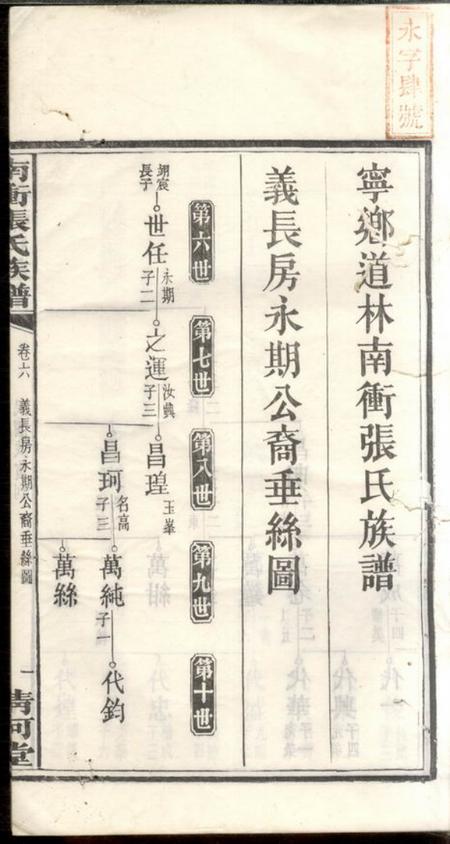 永字肆號
寧鄉道林南衝張氏族譜
義長房永期公裔垂絲圖
第六世
第七世
第八世
第九世
第十世
翊宸
長子
世任
永期
子二
之運
汝典
子三
昌瑝
玉峯
昌珂
名高
子三
萬純
子一
代鈞
萬絲
南衝張氏族譜
卷六
義長房永期公裔垂絲圖
一
清河堂